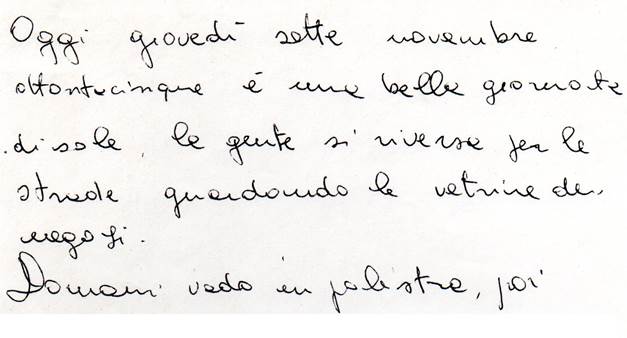 Oggi giovedì sette novembre
ottantacinque è una bella giornata
di sole, la gente si riversa per le
strade guardando le vetrine dei
negozi.
Domani vado in palestra, poi